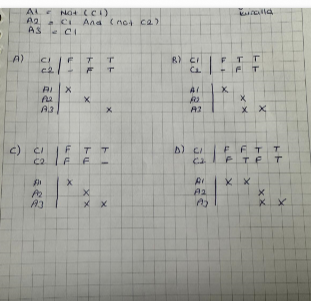 A1 = Not (C1)
A2 = C1 And (Not C2)
A3 = C1
A) C1 | F T T
C2 | - F T
A1 | X
A2 | X
A3 | X
B) C1 | F T T
C2 | - F T
A1 | X
A2 | X
A3 | X X
C) C1 | F T T
C2 | F F -
A1 | X
A2 | X
A3 | X X
D) C1 | F F T T
C2 | F T F T
A1 | X X
A2 | X
A3 | X X